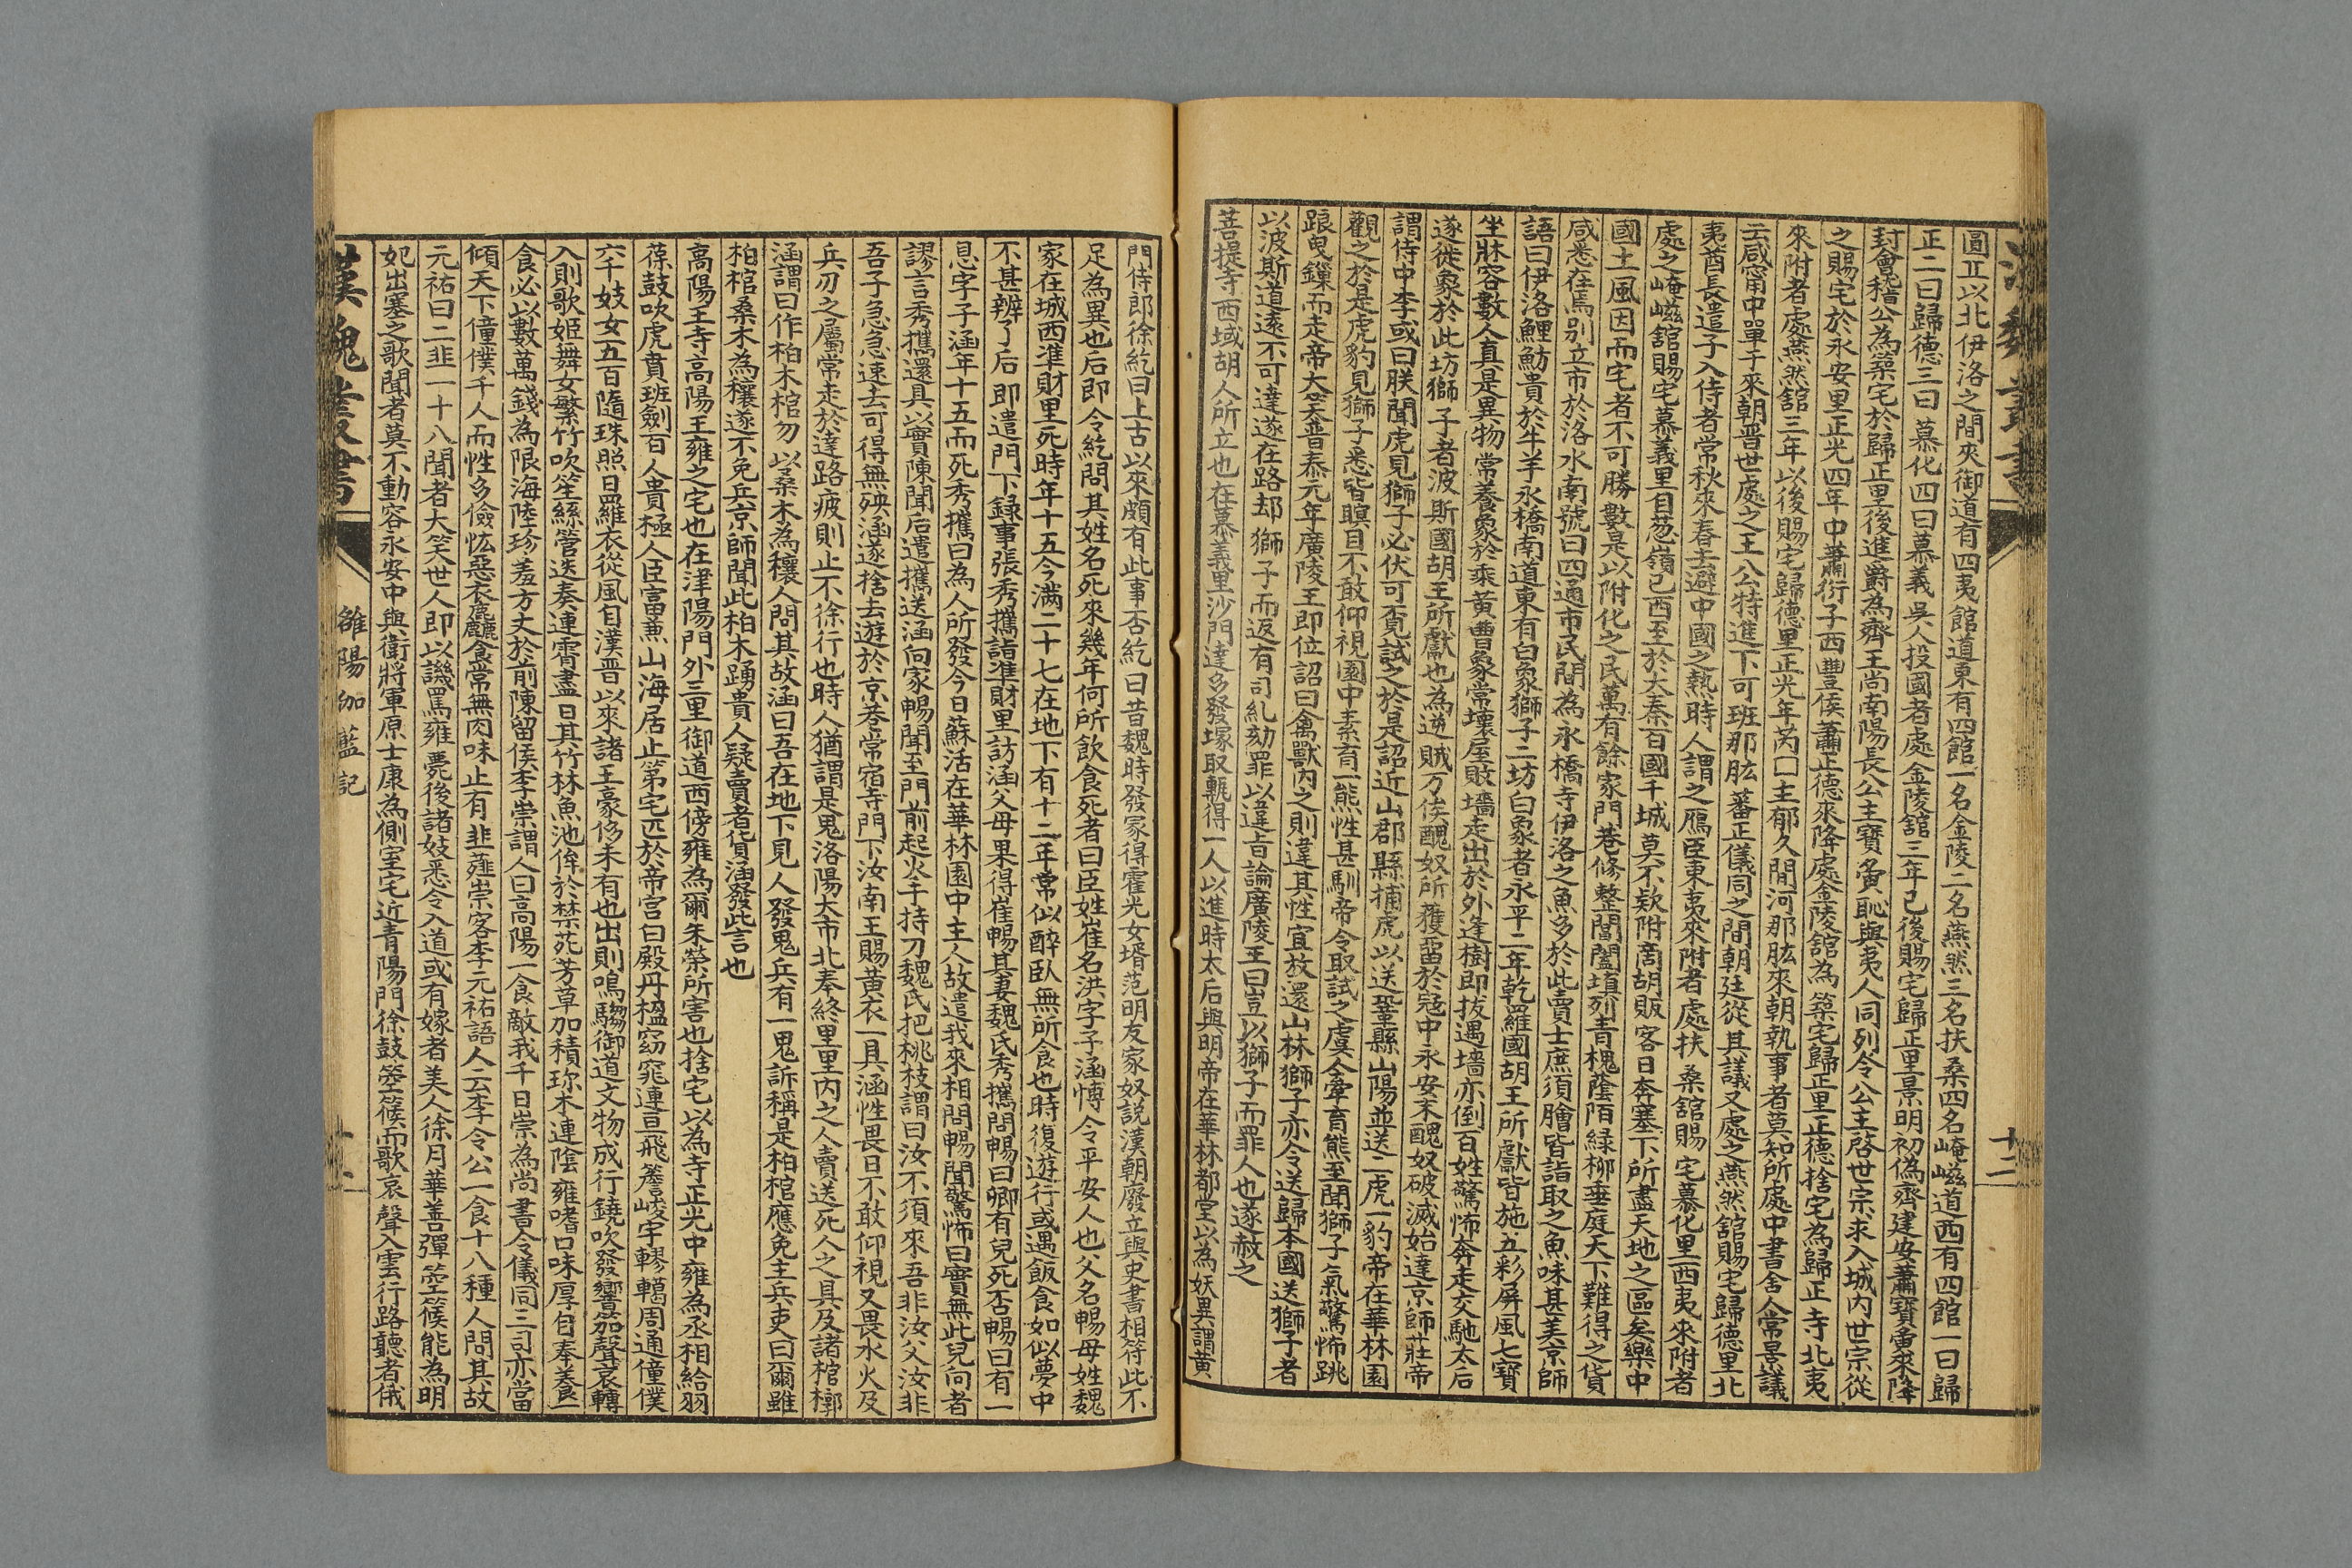 漢魏叢書
十二
圓丘以北伊洛之間夾御道有四夷館道東有四館一名金陵二名燕然三名扶桑四名崦嵫道西有四館一曰歸
正二曰歸德三曰慕化四曰慕義吳人投國者處金陵館三年已後賜宅歸正里景明初偽齊建安蕭寶夤來降
封會稽公為築宅於歸正里後進爵為齊王尚南陽長公主寶夤恥與夷人同列令公主啓世宗求入城內世宗從
之賜宅於永安里正光四年中蕭衍子西豐侯蕭正德來降處金陵館為築宅歸正里正德捨宅為歸正寺北夷
來附者處燕然館三年以後賜宅歸德里正光年芮口主郁久閭河那肱來朝執事者莫知所處中書舍人常景議
云咸甯中單于來朝晋世處之王公特進下可班那肱蕃王儀同之間朝廷從其議又處之燕然館賜宅歸德里北
夷酋長遣子入侍者常秋來春去避中國之熱時人謂之鴈臣東夷來附者處扶桑館賜宅慕化里西夷來附者
處之崦嵫館賜宅慕義里自葱嶺已西至於大秦百國千城莫不欵附商胡販客日奔塞下所盡天地之區矣樂中
國土風因而宅者不可勝數是以附化之民萬有餘家門巷修整閶闔填列青槐蔭陌綠柳垂庭天下難得之貨
咸悉在焉别立市於洛水南號曰四通市民間為永橋寺伊洛之魚多於此賣士庶須膾皆詣取之魚味甚美京師
語曰伊洛鯉魴貴於牛羊永橋南道東有白象獅子二坊白象者永平二年乾羅國胡王所獻皆施五彩屏風七寶
坐牀容數人真是異物常養象於乘黄曹象常壞屋敗墻走出於外逢樹即拔遇墻亦倒百姓驚怖奔走交馳太后
遂徙象於此坊獅子者波斯國胡王所獻也為逆賊万俟醜奴所獲留於寇中永安末醜奴破滅始達京師莊帝
謂侍中李或曰朕聞虎見獅子必伏可覓試之於是詔近山郡縣捕虎以送鞏縣山陽並送二虎一豹帝在華林園
觀之於是虎豹見獅子悉皆瞑目不敢仰視園中素育一熊性甚馴帝令取試之虞人牽育熊至聞獅子氣驚怖跳
踉曳鏁而走帝大笑普泰元年廣陵王即位詔曰禽獸內之則違其性宜放還山林獅子亦令送歸本國送獅子者
以波斯道遠不可達遂在路却獅子而返有司糺劾罪以違旨論廣陵王曰豈以獅子而罪人也遂赦之
菩提寺西域胡人所立也在慕義里沙門達多發塚取甎得一人以進時太后與明帝在華林都堂以為妖異謂黄
門侍郎徐紇曰上古以來頗有此事否紇曰昔魏時發冢得霍光女壻范明友家奴説漢朝廢立與史書相符此不
足為異也后即令紇問其姓名死來幾年何所飲食死者曰臣姓崔名洪字子涵愽令平安人也父名暢母姓魏
家在城西準財里死時年十五今滿二十七在地下有十二年常似醉臥無所食也時復遊行或遇飯食如似夢中
不甚辨了后即遣門下録事張秀攜詣準財里訪涵父母果得崔暢其妻魏氏秀攜問暢曰卿有兒死否暢曰有一
息字子涵年十五而死秀攜曰為人所發今日蘇活在華林園中主人故遣我來相問暢聞驚怖曰實無此兒向者
謬言秀攜還具以實陳聞后遣攜送涵向家暢聞至門前起火手持刀魏氏把桃枝謂曰汝不須來吾非汝父汝非
吾子急急速去可得無殃涵遂捨去遊於京巷常宿寺門下汝南王賜黄衣一具涵性畏日不敢仰視又畏水火及
兵刃之屬常走於達路疲則止不徐行也時人猶謂是鬼洛陽大市北奉終里里内之人賣送死人之具及諸棺槨
涵謂曰作柏木棺勿以桑木為欀人問其故涵曰吾在地下見人發鬼兵有一鬼訴稱是柏棺應免主兵吏曰爾雖
柏棺桑木為欀遂不免兵京師聞此柏木踴貴人疑賣者貨涵發此言也
高陽王寺高陽王雍之宅也在津陽門外三里御道西傍雍為爾朱榮所害也捨宅以為寺正光中雍為丞相給羽
葆鼓吹虎賁班劍百人貴極人臣富兼山海居止第宅匹於帝宫白殿丹楹窈窕連亘飛簷峻宇轇轕周通僮僕
六千妓女五百隨珠照日羅衣從風自漢晋以來諸王豪侈未有也出則鳴騶御道文物成行鐃吹發響笳聲哀轉
入則歌姬舞女繁竹吹笙絲管迭奏連霄盡日其竹林魚池侔於禁苑芳草加積珎木連陰雍嗜口味厚自奉養一
食必以數萬錢為限海陸珍羞方丈於前陳留侯李崇謂人曰高陽一食敵我千日崇為尚書令儀同三司亦富
傾天下僮僕千人而性多儉恡惡衣麤食常無肉味止有韭薤崇客李元祐語人云李令公一食十八種人問其故
元祐曰二韭一十八聞者大笑世人即以譏罵雍薨後諸妓悉令入道或有嫁者美人徐月華善彈箜篌能為明
妃出塞之歌聞者莫不動容永安中與衛將軍原士康為側室宅近青陽門徐鼓箜篌而歌哀聲入雲行路聽者俄
漢魏叢書
雒陽伽藍記